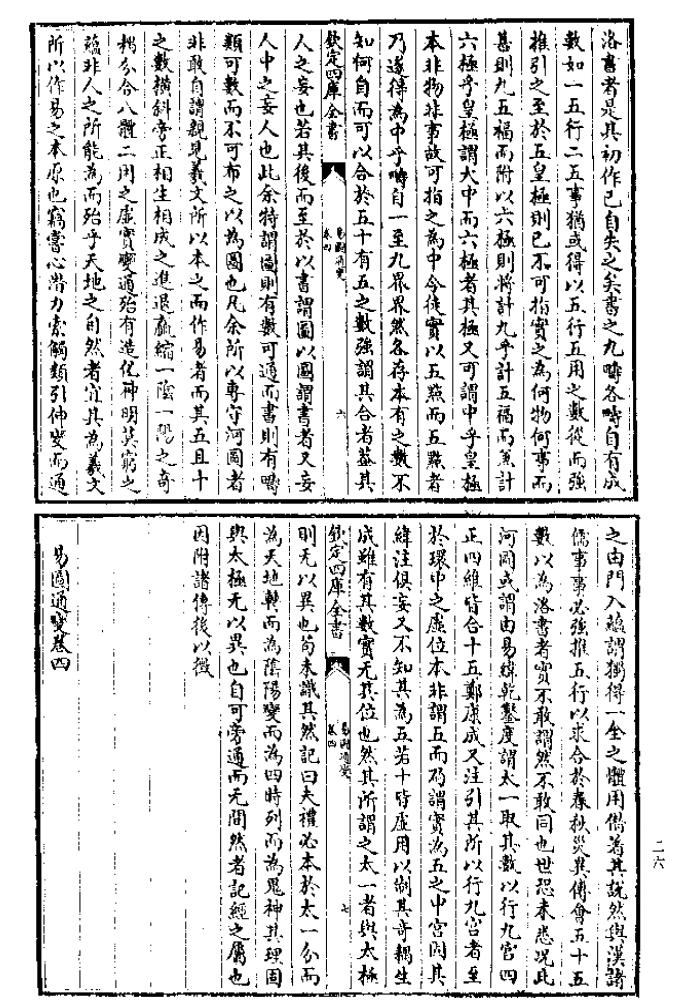 洛書者是其初作已自失之矣書之九疇各疇自有成
數如一五行二五事猶或得以五行五用之數從而強
推引之至於五皇極則已不可指實之為何物何事而
甚則九五福而附以六極則將計九乎計五福而兼計
六極乎皇極謂大中而六極者其極又可謂中乎皇極
本非物非事故可指之為中今徒實以五㸃而五㸃者
乃遂得為中乎疇自一至九界界然各存本有之數不
知何自而可以合於五十有五之數強謂其合者葢其
欽定四庫全書
易圖通變
卷四
六
人之妄也若其後而至於以書謂圖以圖謂書者又妄
人中之妄人也此余特謂圖則有數可通而書則有疇
類可數而不可布之以為圖也凡余所以専守河圖者
非敢自謂親見羲文所以本之而作易者而其五且十
之數橫斜旁正相生相成之進退贏縮一陰一陽之奇
耦分合八體二用之虛實變通殆有造化神明莫窮之
蘊非人之所能為而殆乎天地之自然者宜其為羲文
所以作易之本原也竊嘗心潛力索觸類引伸變而通
之由門入蘊謂獨得一全之體用僭著其説然與漢諸
儒事事必強推五行以求合於春秋災異傳會五十五
數以為洛書者實不敢謂然不敢同也世恐未悉况此
河圖或謂由易緯乾鑿度謂太一取其數以行九宮四
正四維皆合十五鄭康成又注引其所以行九宮者至
於環中之虛位本非謂五而乃謂實為五之中宮因其
緯注俱妄又不知其為五若十時虛用以制其奇耦生
成雖有其數實无其位也然其所謂之太一者與太極
欽定四庫全書
易圖通變
卷四
七
則无以異也苟未識其然記曰夫禮必本於太一分而
為天地轉而為陰陽變而為四時列而為鬼神其理固
與太極无以異也自可旁通而无間然者記經之屬也
因附諸傳後以徴
易圖通變卷四
二六